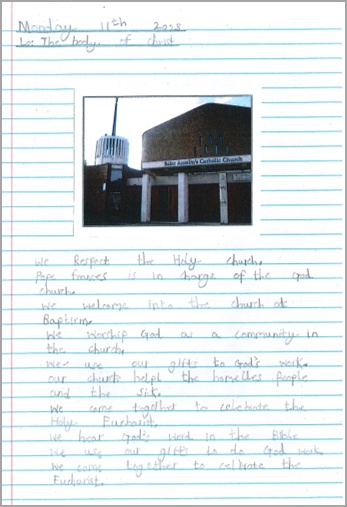 Monday 11th 2018
Lo: The body of christ
Saint Anselm's Catholic Church
We Respect the Holy church.
Pope frnaces is in charge of the god
church.
We welcome into the church at
Baptism.
We worship God as a community in
the church.
We use our gifts to God's work.
our church help the homelless people
and the sik.
We come together to celebrate the
Holy Eucharist.
We hear God's word in the Bible
We use our gifts to do God work
We come together to celbrate the
Eucharist.